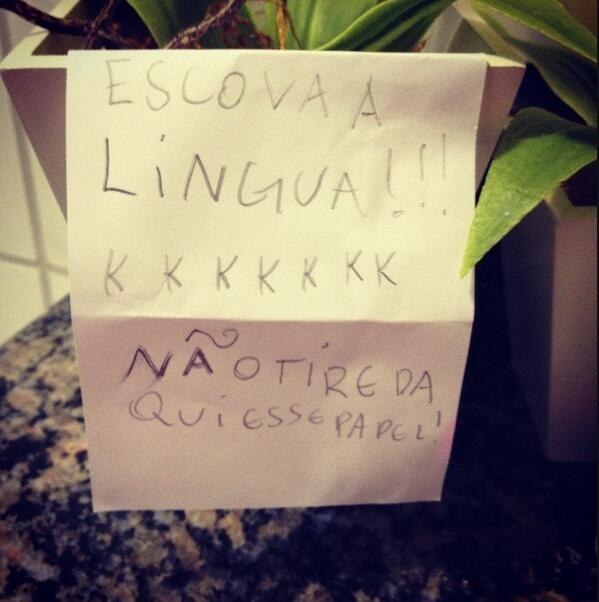 ESCOVA A
LiNGUA!!!
K K K K K K K
NÃO TiRE DA
QUi ESSE PAPEL!